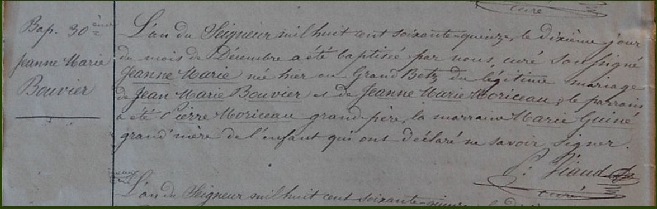 curé
Bap. 30ème
Jeanne Marie
Bouvier
L'an du Seigneur mil huit cent soixante-quinze, le dixième jour
du mois de Décembre a été baptisée par nous, curé soussigné
Jeanne Marie née hier au Grand Betz du légitime mariage
de Jean Marie Bouvier et de Jeanne Marie Moriceau; le parrain
a été Pierre Moriceau grand-père, la marraine Marie Guiné
grand'mère de l'enfant qui ont déclaré ne savoir signer.
curé
L'an du Seigneur mil huit cent soixante-quinze